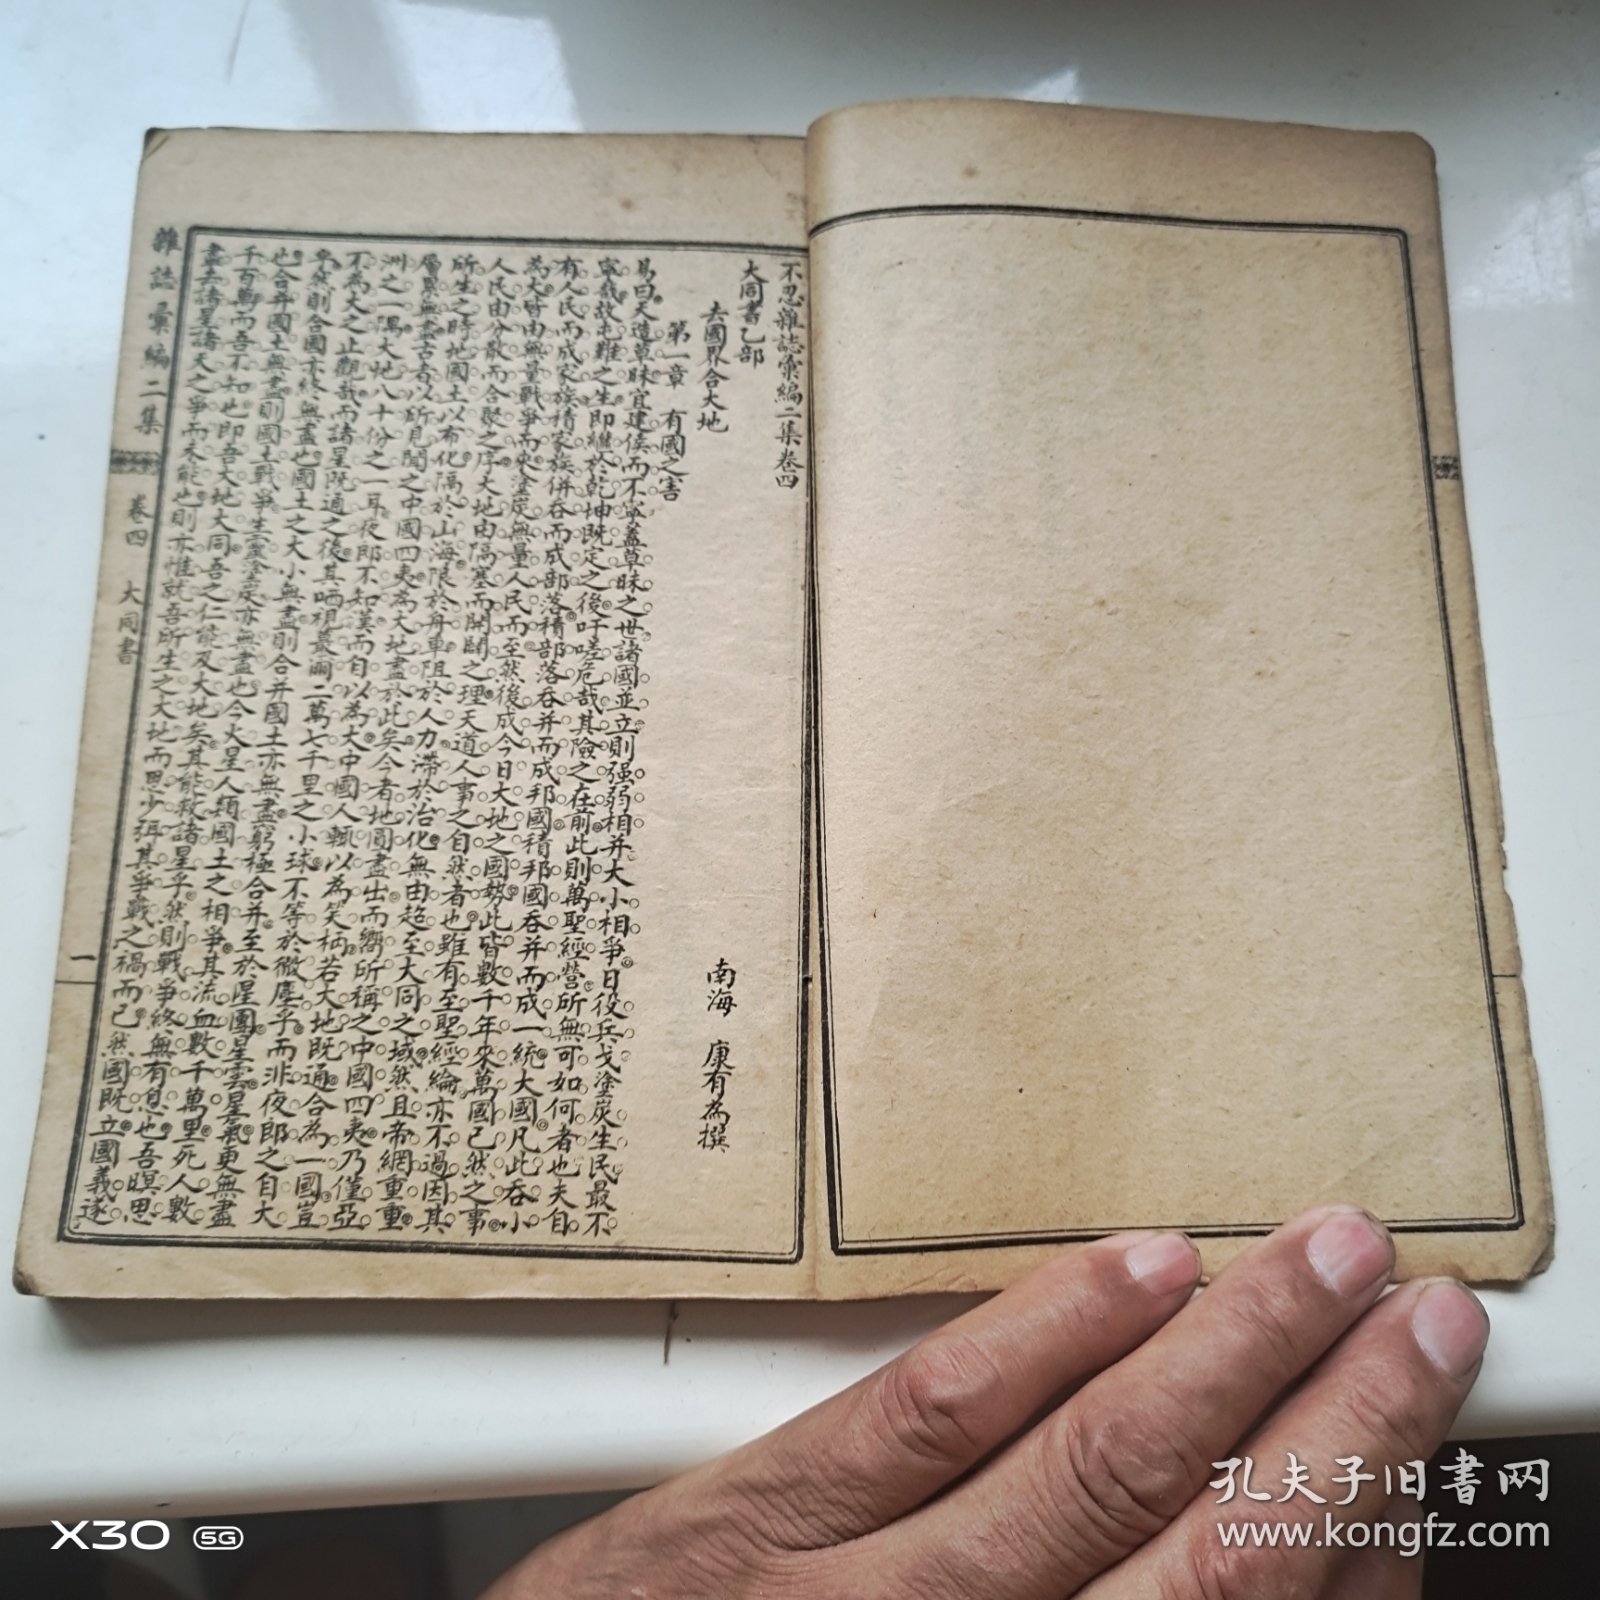 不忍雜誌彙編二集卷四
大同書乙部
去國界合大地
南海　康有為撰
第一章　有國之害
易曰天造草昧宜建侯而不寧蓋草昧之世諸國並立則强弱相并大小相爭日役兵戈塗炭生民最不
寧哉故屯難之生即繼於乾坤既定之後吁嗟危哉其險之在前此則萬聖經營所無可如何者也夫自
有人民而成家族積家族併吞而成部落積部落吞并而成邦國積邦國吞并而成一統大國凡此吞小
為大皆由無量戰爭而來塗炭無量人民而至然後成今日大地之國勢此皆數千年來萬國已然之事
人民由分散而合聚之序大地由隔塞而開闢之理天道人事之自然者也雖有至聖經綸亦不過因其
所生之時地國土以布化隔於山海限於舟車阻於人力滯於治化無由超至大同之域然且帝網重重
層累無盡古者以所見聞之中國四夷為大地盡於此矣今者地圓盡出而嚮所稱之中國四夷乃僅亞
洲之一隅大地八十份之一耳夜郎不知漢而自以為大中國人輒以為笑柄若大地既通合為一國豈
不為大之止觀哉而諸星既通之後其哂視蕞爾二萬七千里之小球不等於微塵乎而非夜郎之自大
乎然則合國亦終無盡也國土之大小無盡則合并國土亦無盡窮極合并至於星團星雲星氣更無盡
也合并國土無盡則國土戰爭生靈塗炭亦無盡也今火星人類國土之相爭其流血數千萬里死人數
千百萬而吾不知也即吾大地大同吾之仁能及大地矣其能救諸星乎然則戰爭終無有息也吾瞑思
盡去諸星諸天之爭而未能也則亦惟就吾所生之大地而思少弭其爭戰之禍而已然國既立國義遂
雜誌彙編二集
卷四　大同書
一
X30 5G
孔夫子旧书网
www.kongfz.com